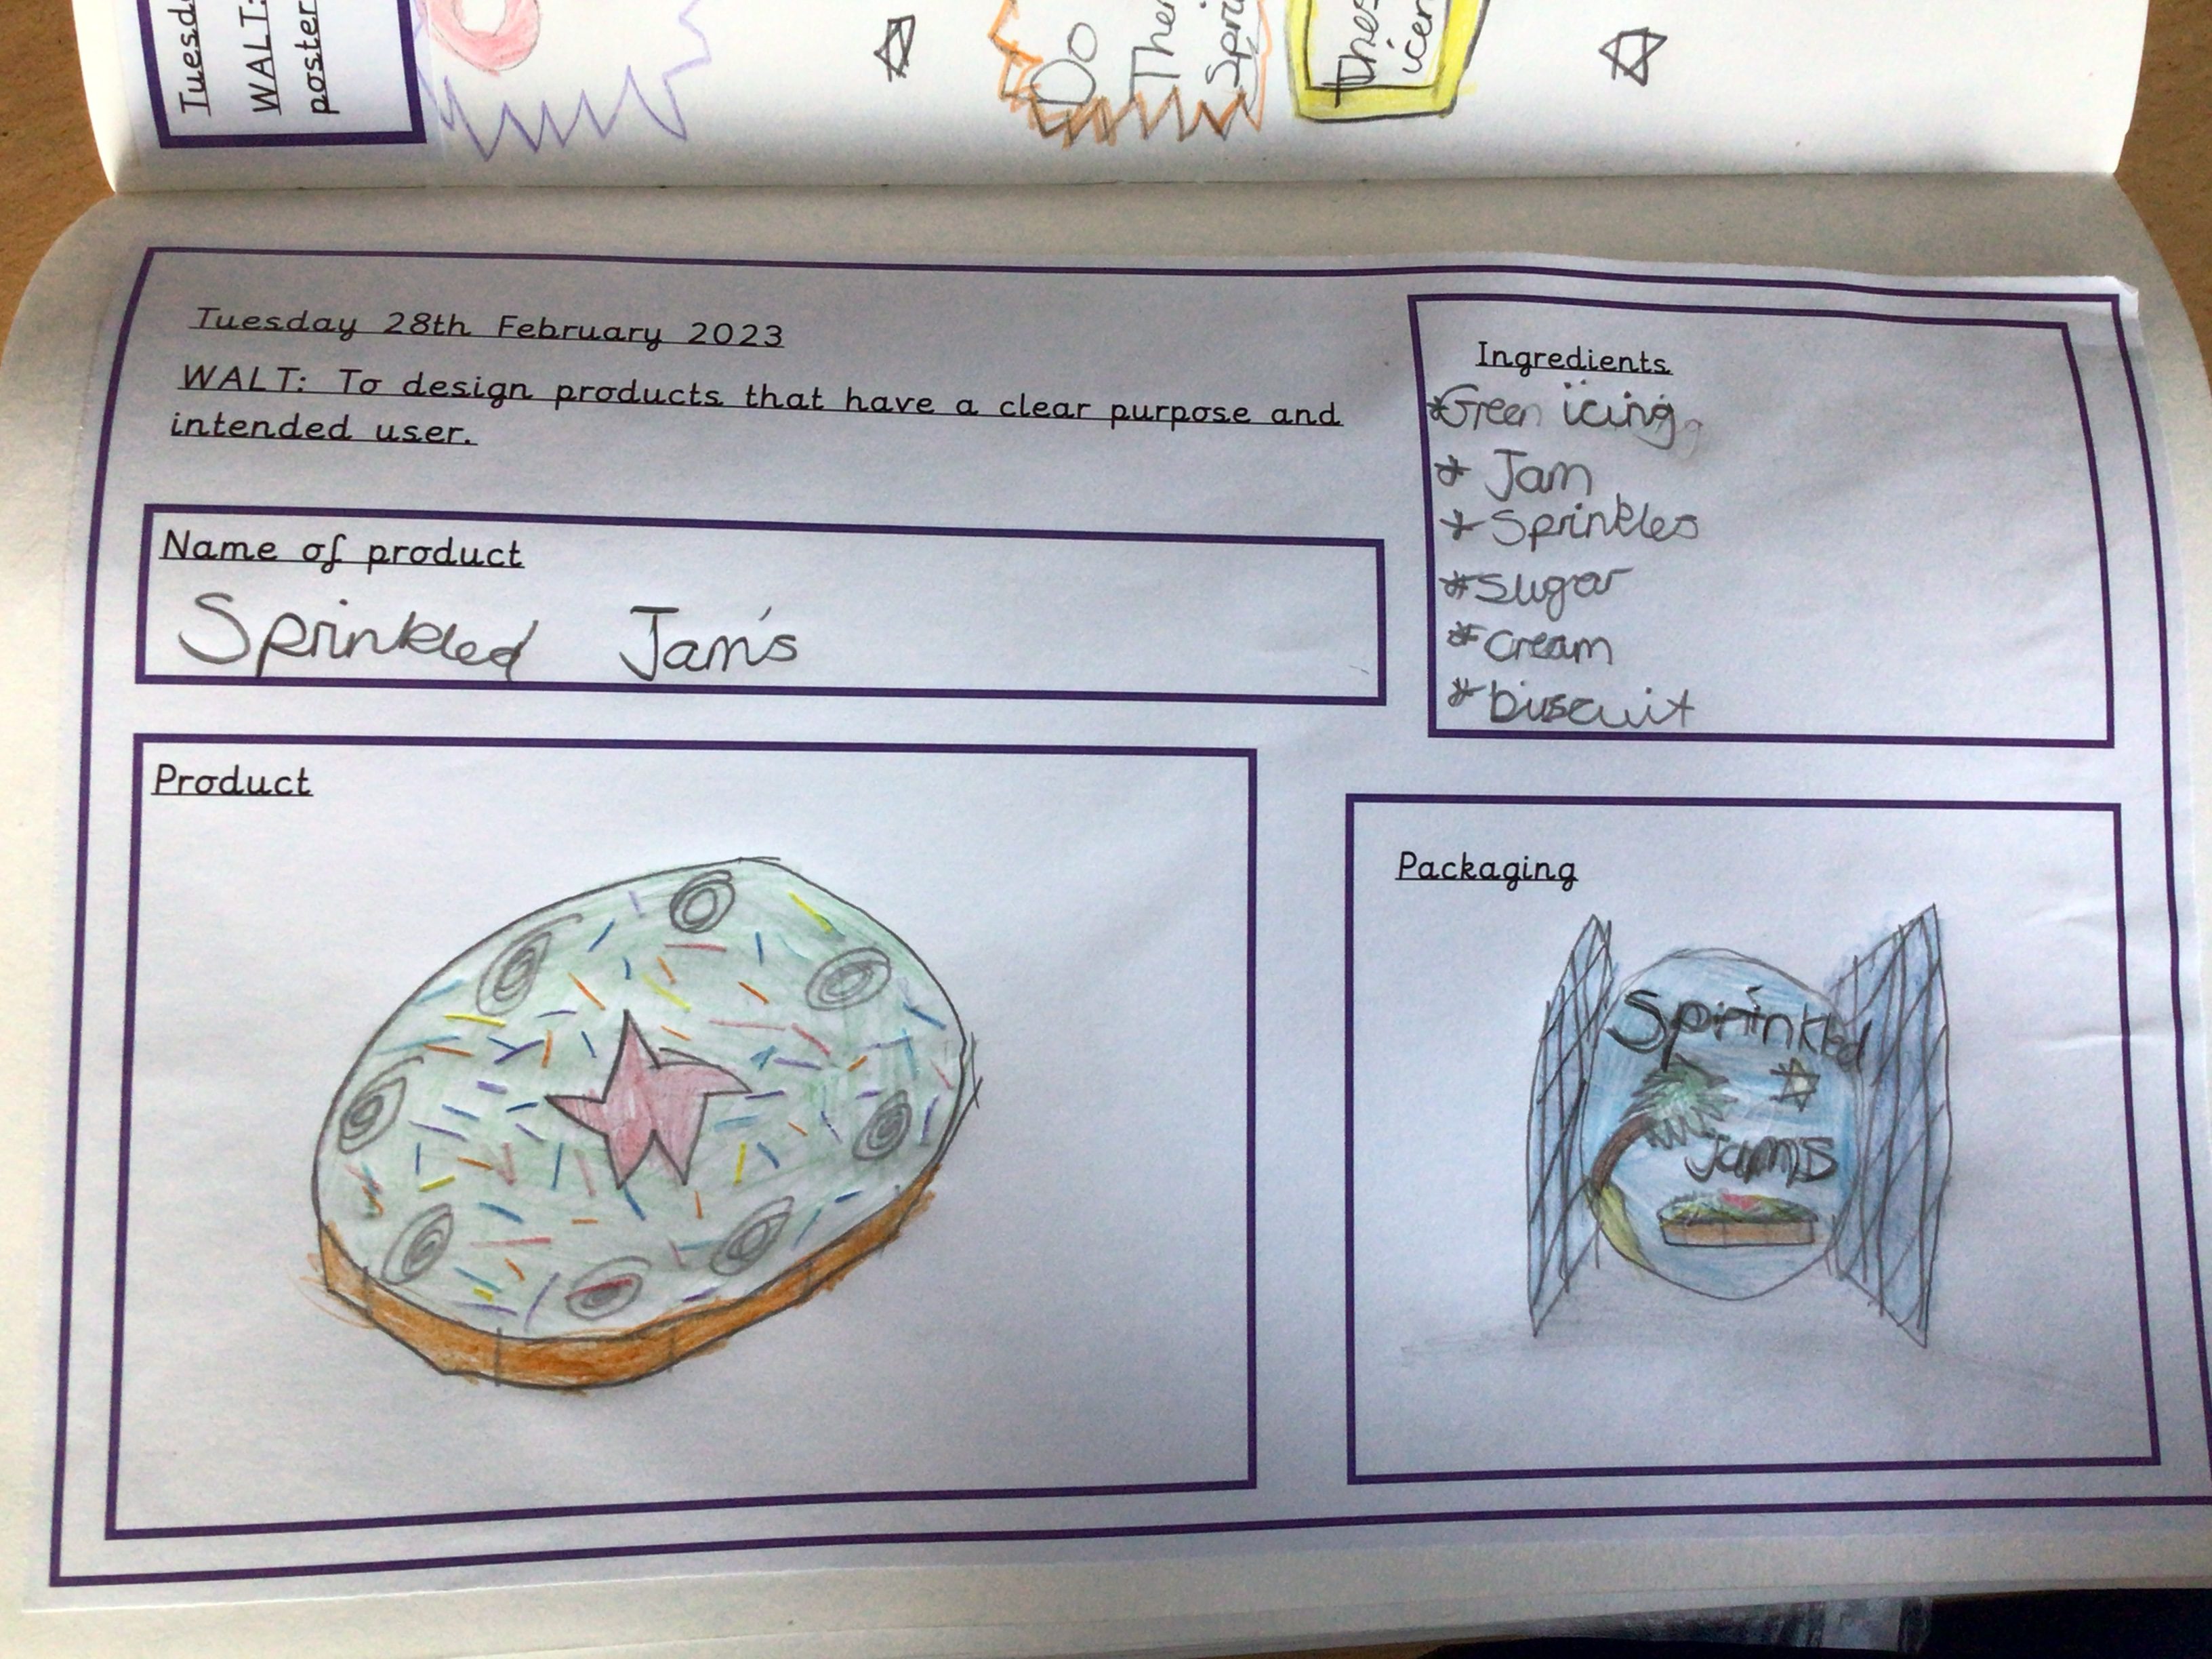 Tuesd
WALT:
poster
Do
Ther
Spri
Thes
icen
Tuesday 28th February 2023
WALT: To design products that have a clear purpose and
intended user.
Name of product
Sprinkled Jam's
Ingredients
*Green icing
* Jam
* Sprinkles
*Sugar
*cream
*biscuit
Product
Packaging
Sprinkled
Jam's